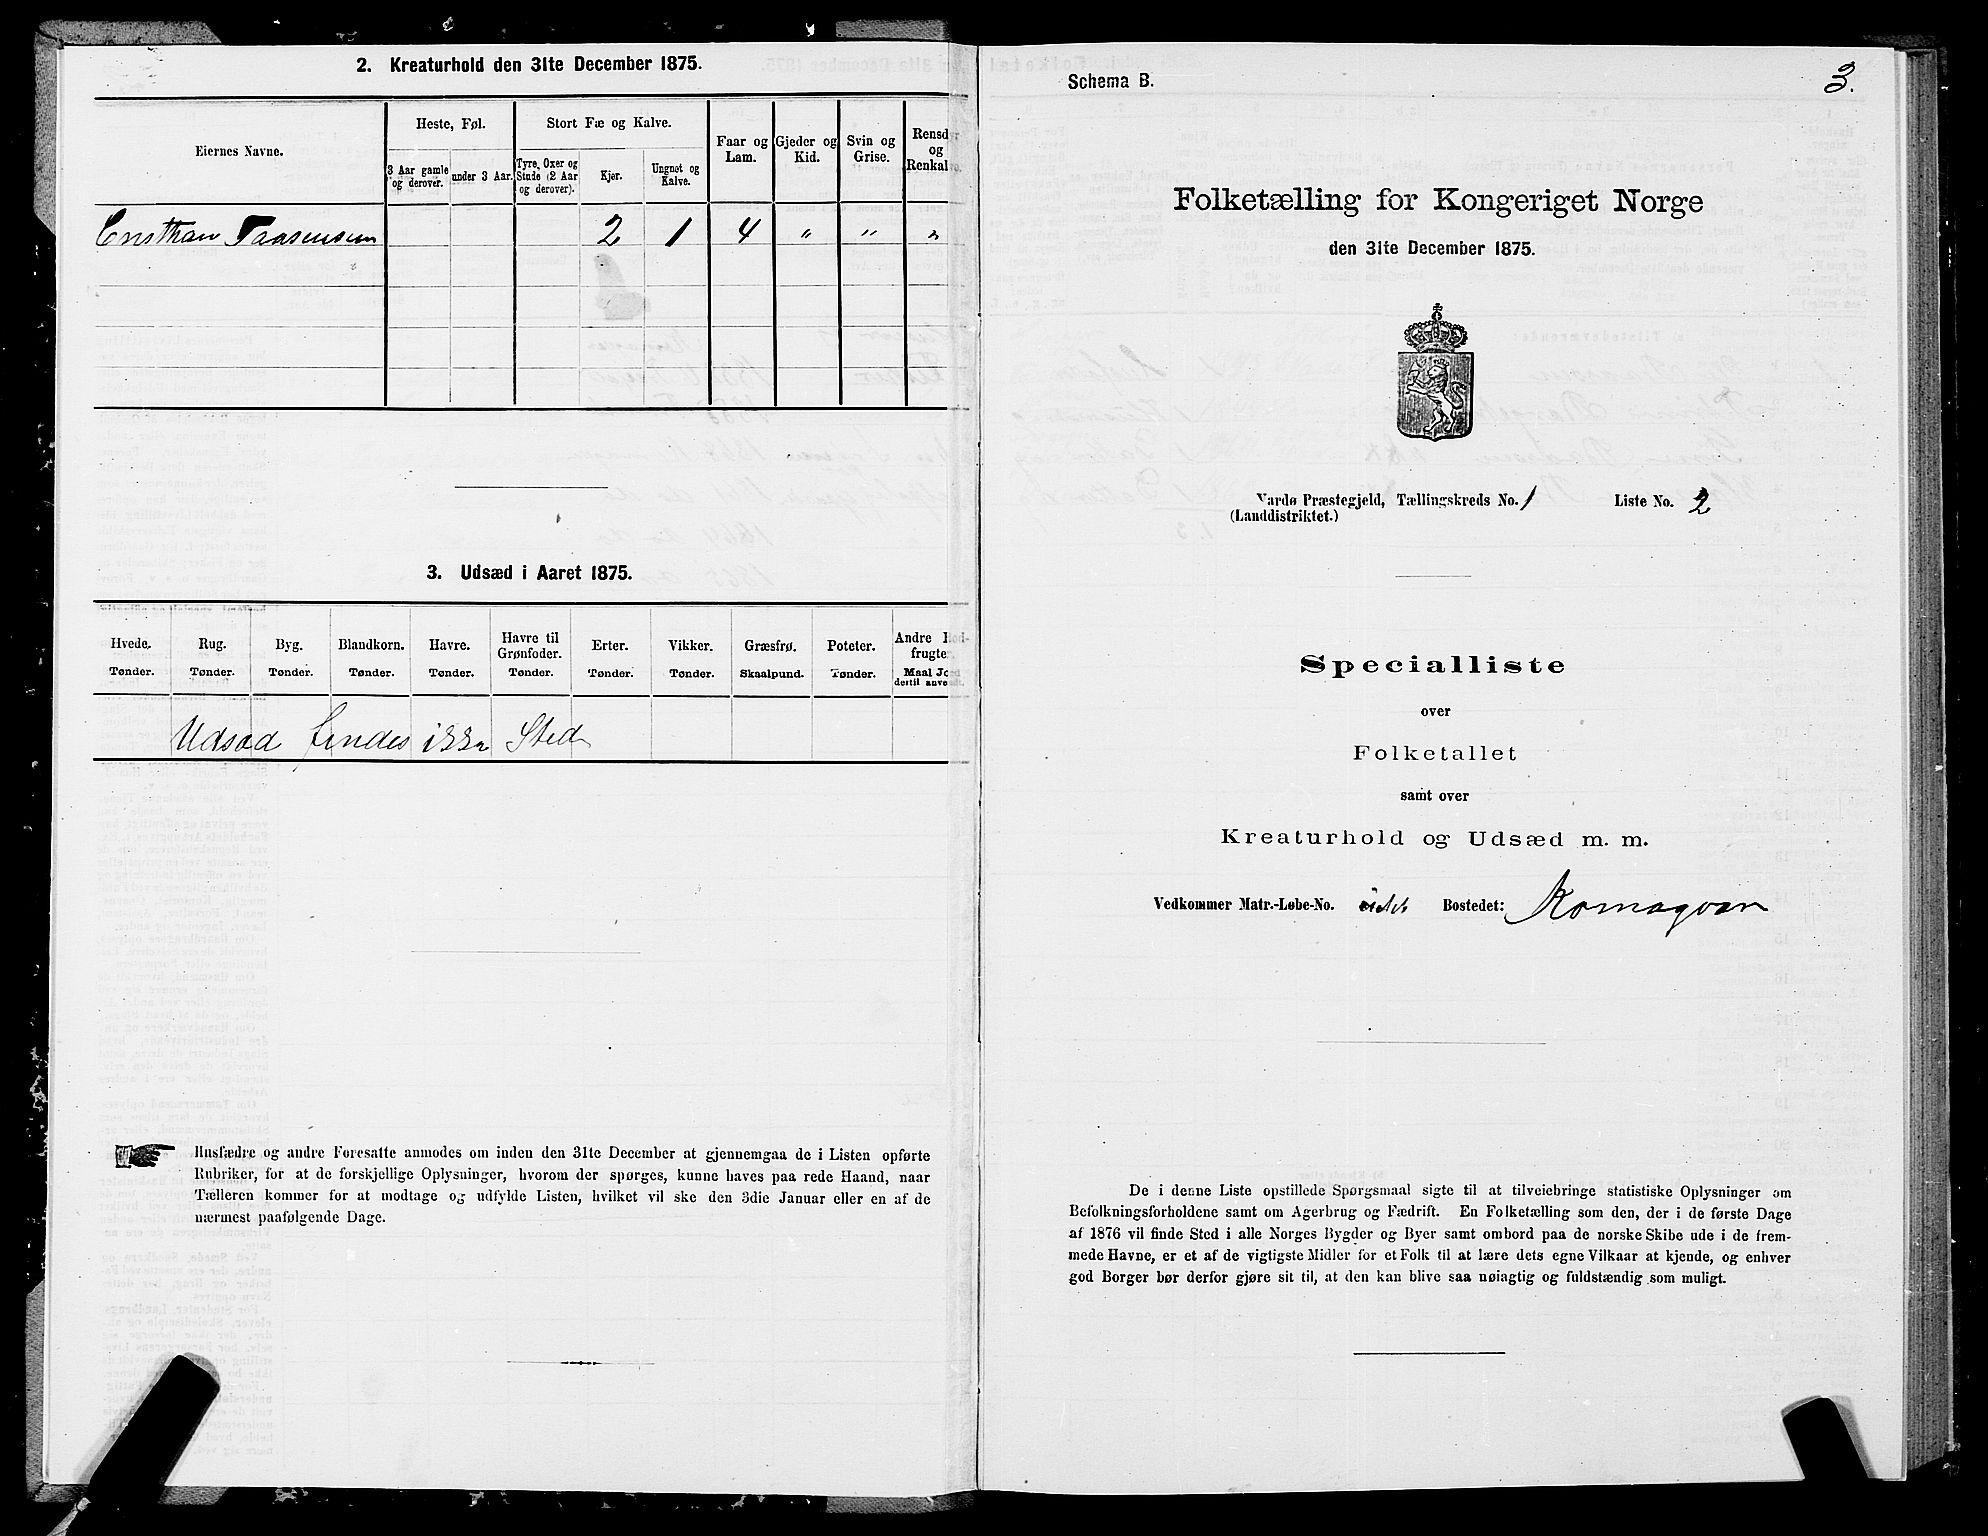 2. Kreaturhold den 31te December 1875.
Eiernes Navne.
Heste, Føl.
3 Aar gamle og derover.
under 3 Aar.
Stort Fæ og Kalve.
Tyre, Oxer og Stude (2 Aar og derover).
Kjer.
Ungnøt og Kalve.
Faar og Lam.
Gjeder og Kid.
Svin og Grise.
Rensdyr og Renkalve.
2 1 4 " " "
3. Udsæd i Aaret 1875.
Hvede. Tønder.
Rug. Tønder.
Byg. Tønder.
Blandkorn. Tønder.
Havre. Tønder.
Havre til Grønfoder. Tønder.
Erter. Tønder.
Vikker. Tønder.
Græsfrø. Skaalpund.
Poteter. Tønder.
Andre Rodfrugter. Maal Jord dertil anvendt.
Udsæd findes ikke Sted
Husfædre og andre Foresatte anmodes om inden den 31te December at gjennemgaa de i Listen opførte
Rubriker, for at de forskjellige Oplysninger, hvorom der spørges, kunne haves paa rede Haand, naar
Tælleren kommer for at modtage og udfylde Listen, hvilket vil ske den 3die Januar eller en af de
nærmest paafølgende Dage.
Schema B.
3.
Folketælling for Kongeriget Norge
den 31te December 1875.
Vardø Præstegjeld, Tællingskreds No. 1 Liste No. 2
(Landdistriktet.)
Specialliste
over
Folketallet
samt over
Kreaturhold og Udsæd m. m.
Vedkommer Matr.-Løbe-No. Bostedet: Komagvær
De i denne Liste opstillede Spørgsmaal sigte til at tilveiebringe statistiske Oplysninger om
Befolkningsforholdene samt om Agerbrug og Fædrift. En Folketælling som den, der i de første Dage
af 1876 vil finde Sted i alle Norges Bygder og Byer samt ombord paa de norske Skibe ude i de frem-
mede Havne, er et af de vigtigste Midler for et Folk til at lære dets egne Vilkaar at kjende, og enhver
god Borger bør derfor gjøre sit til, at den kan blive saa nøiagtig og fuldstændig som muligt.